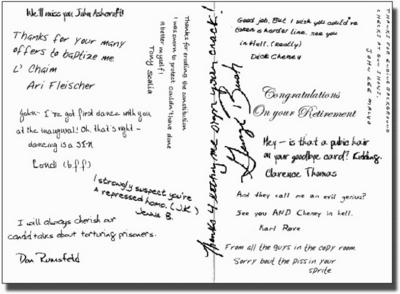 We'll miss you John Ashcroft!
Thanks for your many
offers to baptize me
L' Chaim
Ari Fleischer
Thanks for eroding the constitution
I was sworn to protect. Couldn't have done
it better myself!
Tony Scalia
John- I've got first dance with you
at the inaugural! Oh that's right-
dancing is a SIN
(b.f.f.)
I strongly suspect you're
a repressed homo. (J.K.)
Jenna B.
I will always cherish our
candid talks about torturing prisoners.
Don Rumsfeld
Thanks 4 letting me sign own crack!
George Bush
Good job, But I wish you could've
taken a harder line. See you
in Hell. (really)
Dick Cheney
Thanks for
John Lee Malvo
Congratulations
On your Retirement
Hey - is that a pubic hair
on your goodbye card? Kidding.
Clarence Thomas
And they call me an evil genius?
See you AND Cheney in hell.
Karl Rove
From all the guys in the copy room
Sorry bout the piss in your
Sprite